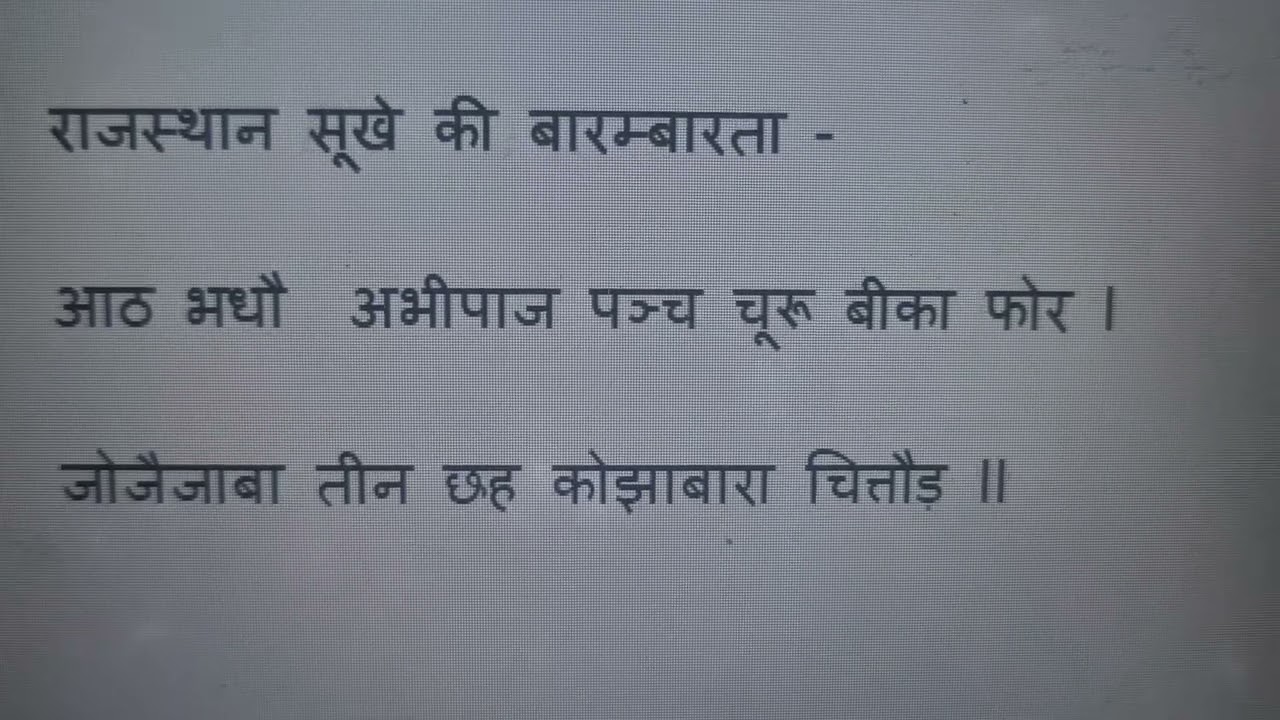 राजस्थान सूखे की बारम्बारता -
आठ भधौ अभीपाज पञ्च चूरू बीका फोर ।
जोजैजाबा तीन छह कोझाबारा चित्तौड़ ॥